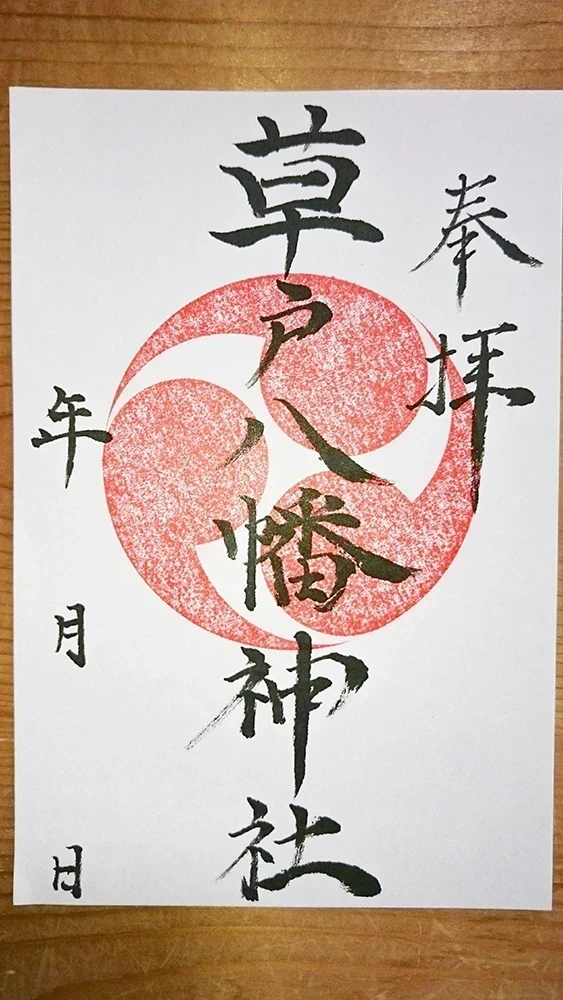 奉拝
草戸八幡神社
年月日